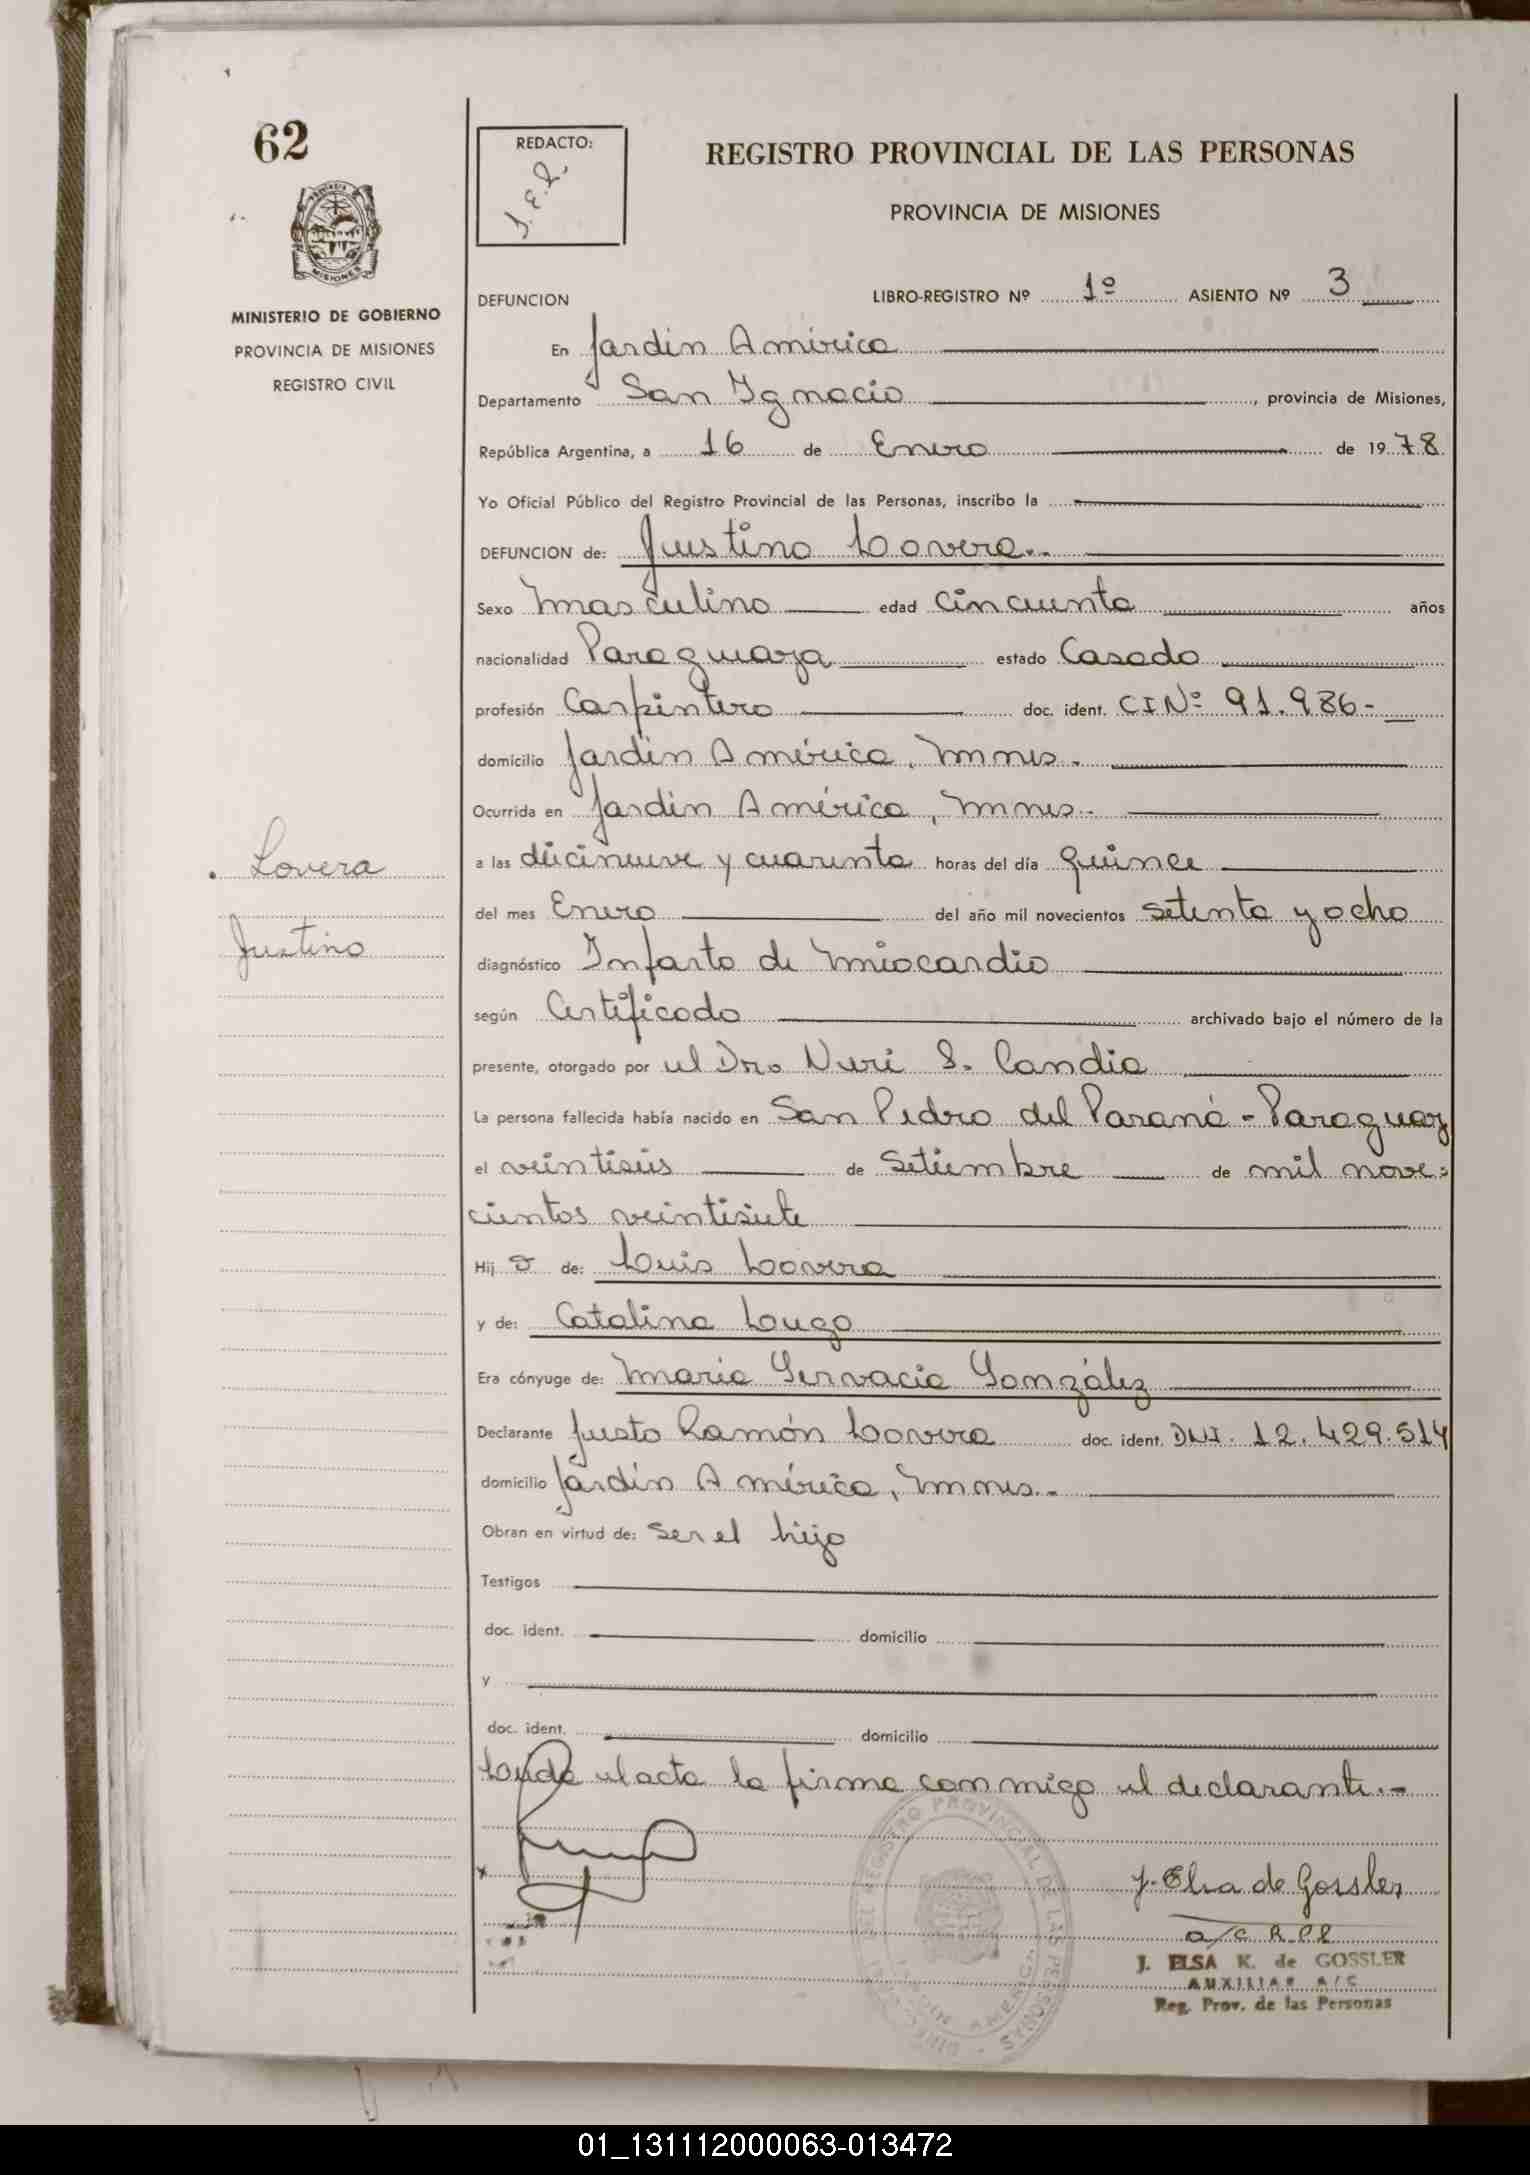 62
REDACTO:
J.E.R.
REGISTRO PROVINCIAL DE LAS PERSONAS
PROVINCIA DE MISIONES
MISIONES
MINISTERIO DE GOBIERNO
PROVINCIA DE MISIONES
REGISTRO CIVIL
DEFUNCION LIBRO-REGISTRO Nº 1º ASIENTO Nº 3
En Jardín América
Departamento San Ignacio, provincia de Misiones,
República Argentina, a 16 de Enero de 1978
Yo Oficial Público del Registro Provincial de las Personas, inscribo la
DEFUNCION de: Justino Lovera..
Sexo Masculino edad Cincuenta años
nacionalidad Paraguaya estado Casado
profesión Carpintero doc. ident. CINº 91.986-
domicilio Jardín América, Mnes.
Ocurrida en Jardín América, Mnes.-
a las diecinueve y cuarenta horas del día quince
del mes Enero del año mil novecientos setenta y ocho
diagnóstico Infarto de Miocardio
según Certificado archivado bajo el número de la
presente, otorgado por el Dr. Nuri S. Candia
La persona fallecida había nacido en San Pedro del Paraná - Paraguay
el veintiséis de Setiembre de mil nove=
cientos veintisiete
Hijo de: Luis Lovera
y de: Catalina Lugo
Era cónyuge de: María Servacia González
Declarante Justo Ramón Lovera doc. ident. DNI. 12.429.514
domicilio Jardín América, Mnes.-
Obran en virtud de: Ser el hijo
Testigos
doc. ident. domicilio
y
doc. ident. domicilio
Leída el acta la firma conmigo el declarante.-
Lovera
Justino
REGISTRO PROVINCIAL DE LAS PERSONAS
JARDIN AMERICA
J. Elsa de Gossler
a/c R.P.P.
J. ELSA K. de GOSSLER
AUXILIAR A/C
Reg. Prov. de las Personas
01_131112000063-013472